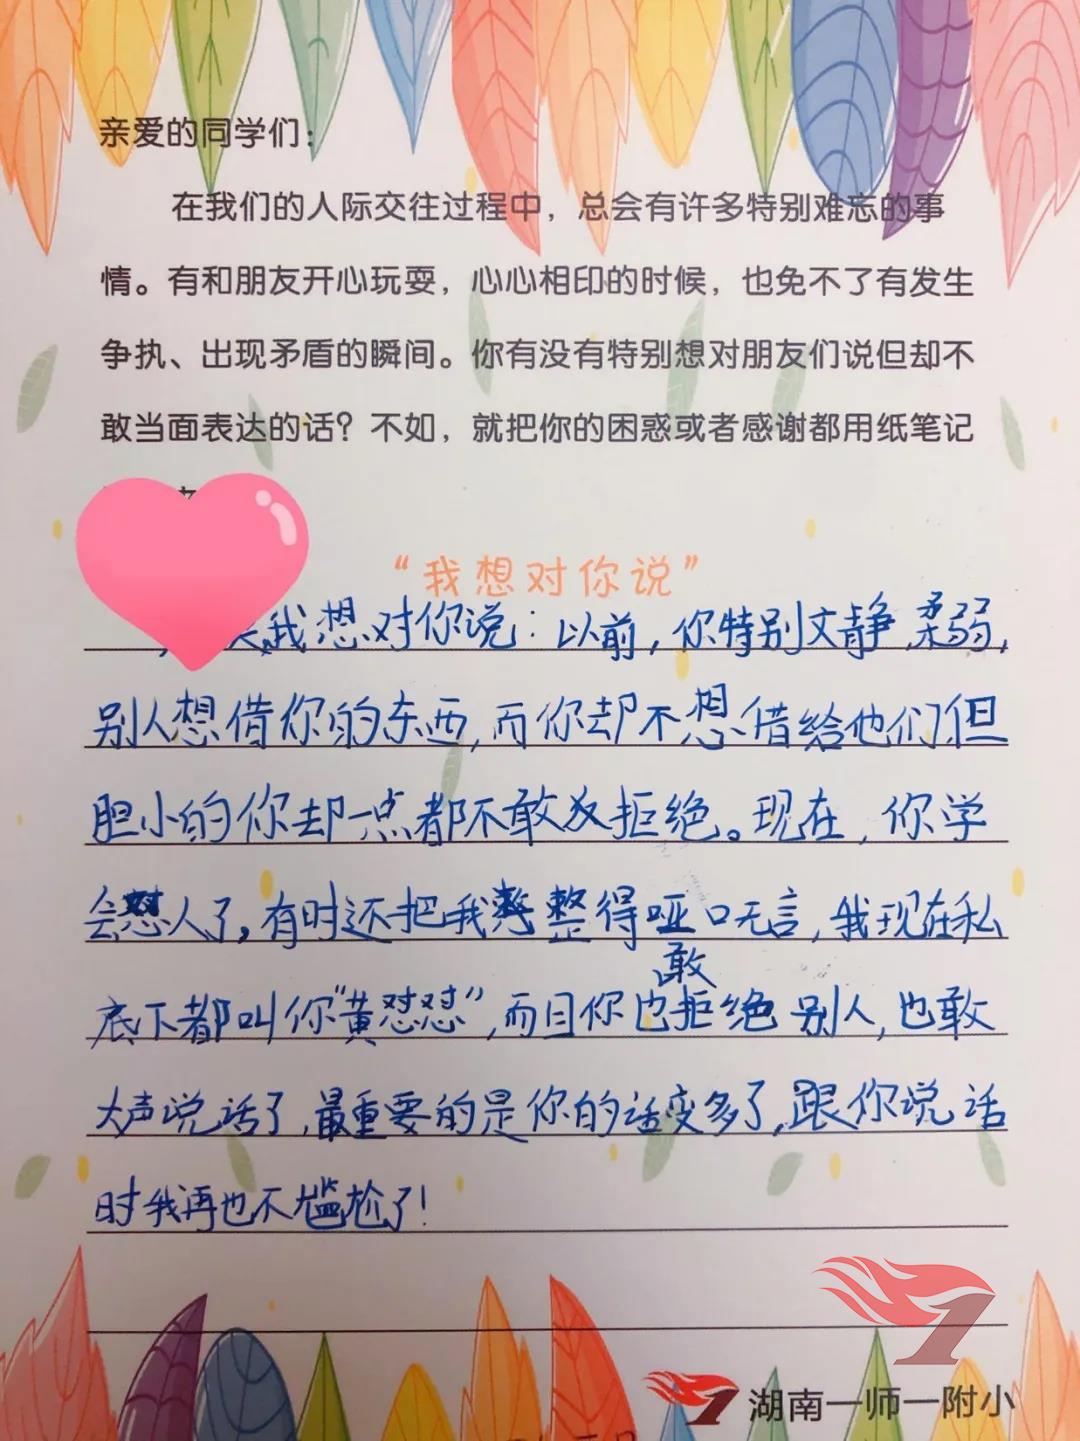 亲爱的同学们：
在我们的人际交往过程中，总会有许多特别难忘的事
情。有和朋友开心玩耍，心心相印的时候，也免不了有发生
争执、出现矛盾的瞬间。你有没有特别想对朋友们说但却不
敢当面表达的话？不如，就把你的困惑或者感谢都用纸笔记
“我想对你说”
我想对你说：以前，你特别文静，柔弱，
别人想借你的东西，而你却不想借给他们但
胆小的你却一点都不敢反拒绝。现在，你学
会怼人了，有时还把我整得哑口无言，我现在私
底下都叫你“黄怼怼”，而且你也敢拒绝别人，也敢
大声说话了，最重要的是你的话变多了，跟你说话
时我再也不尴尬了！
湖南一师一附小